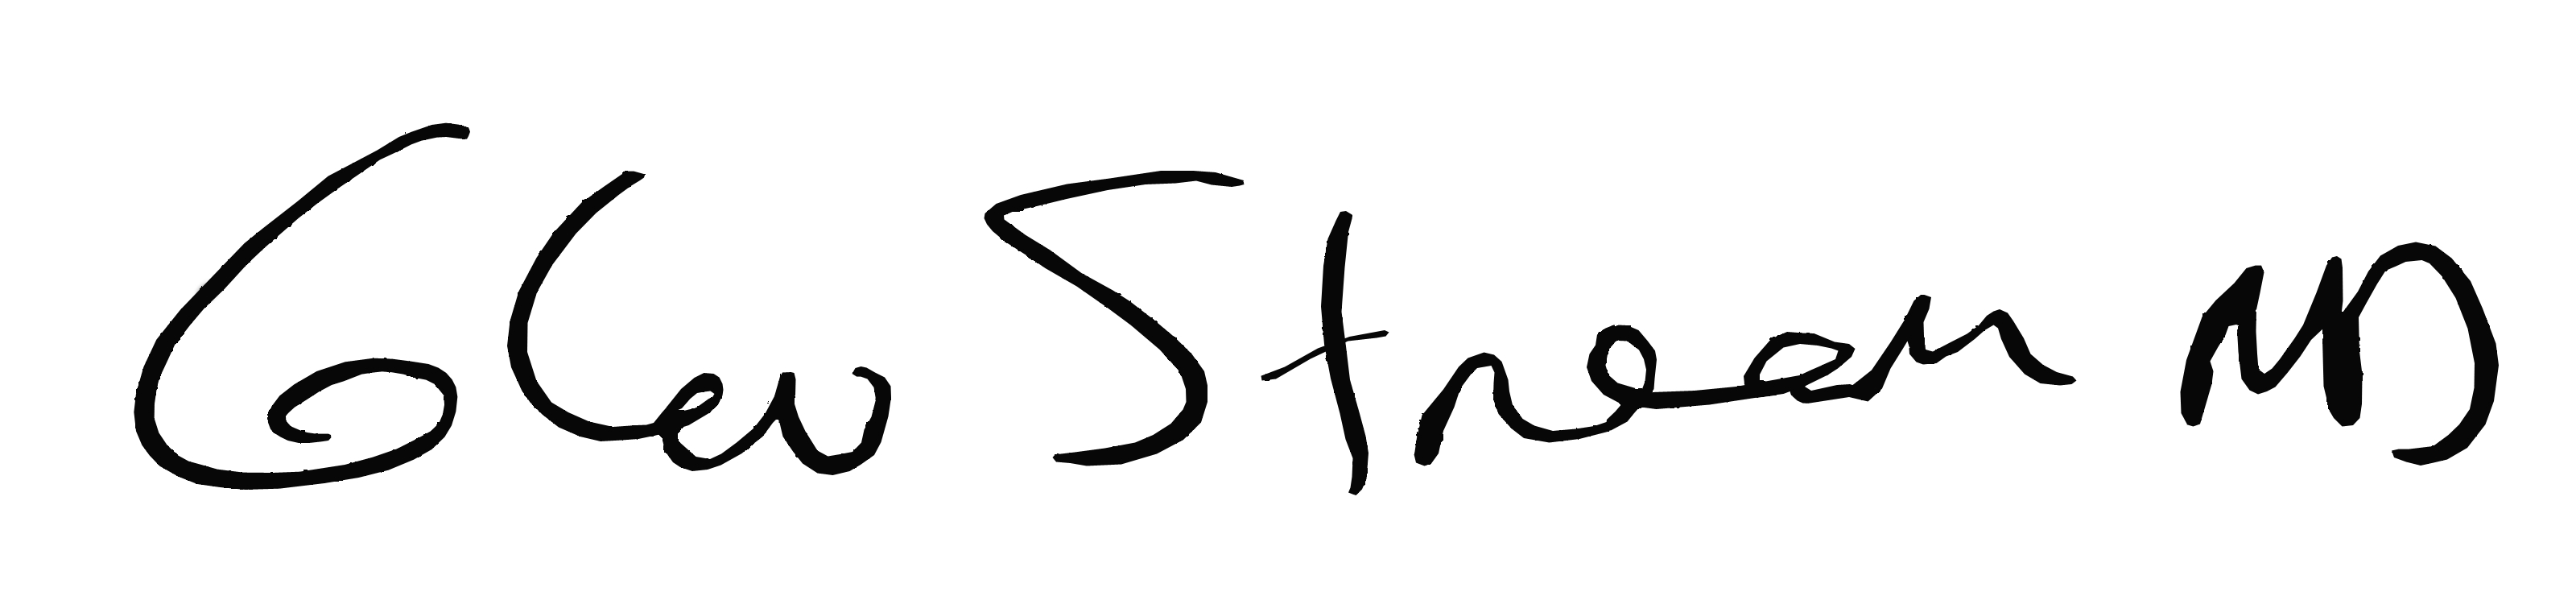 Glen Streem MD